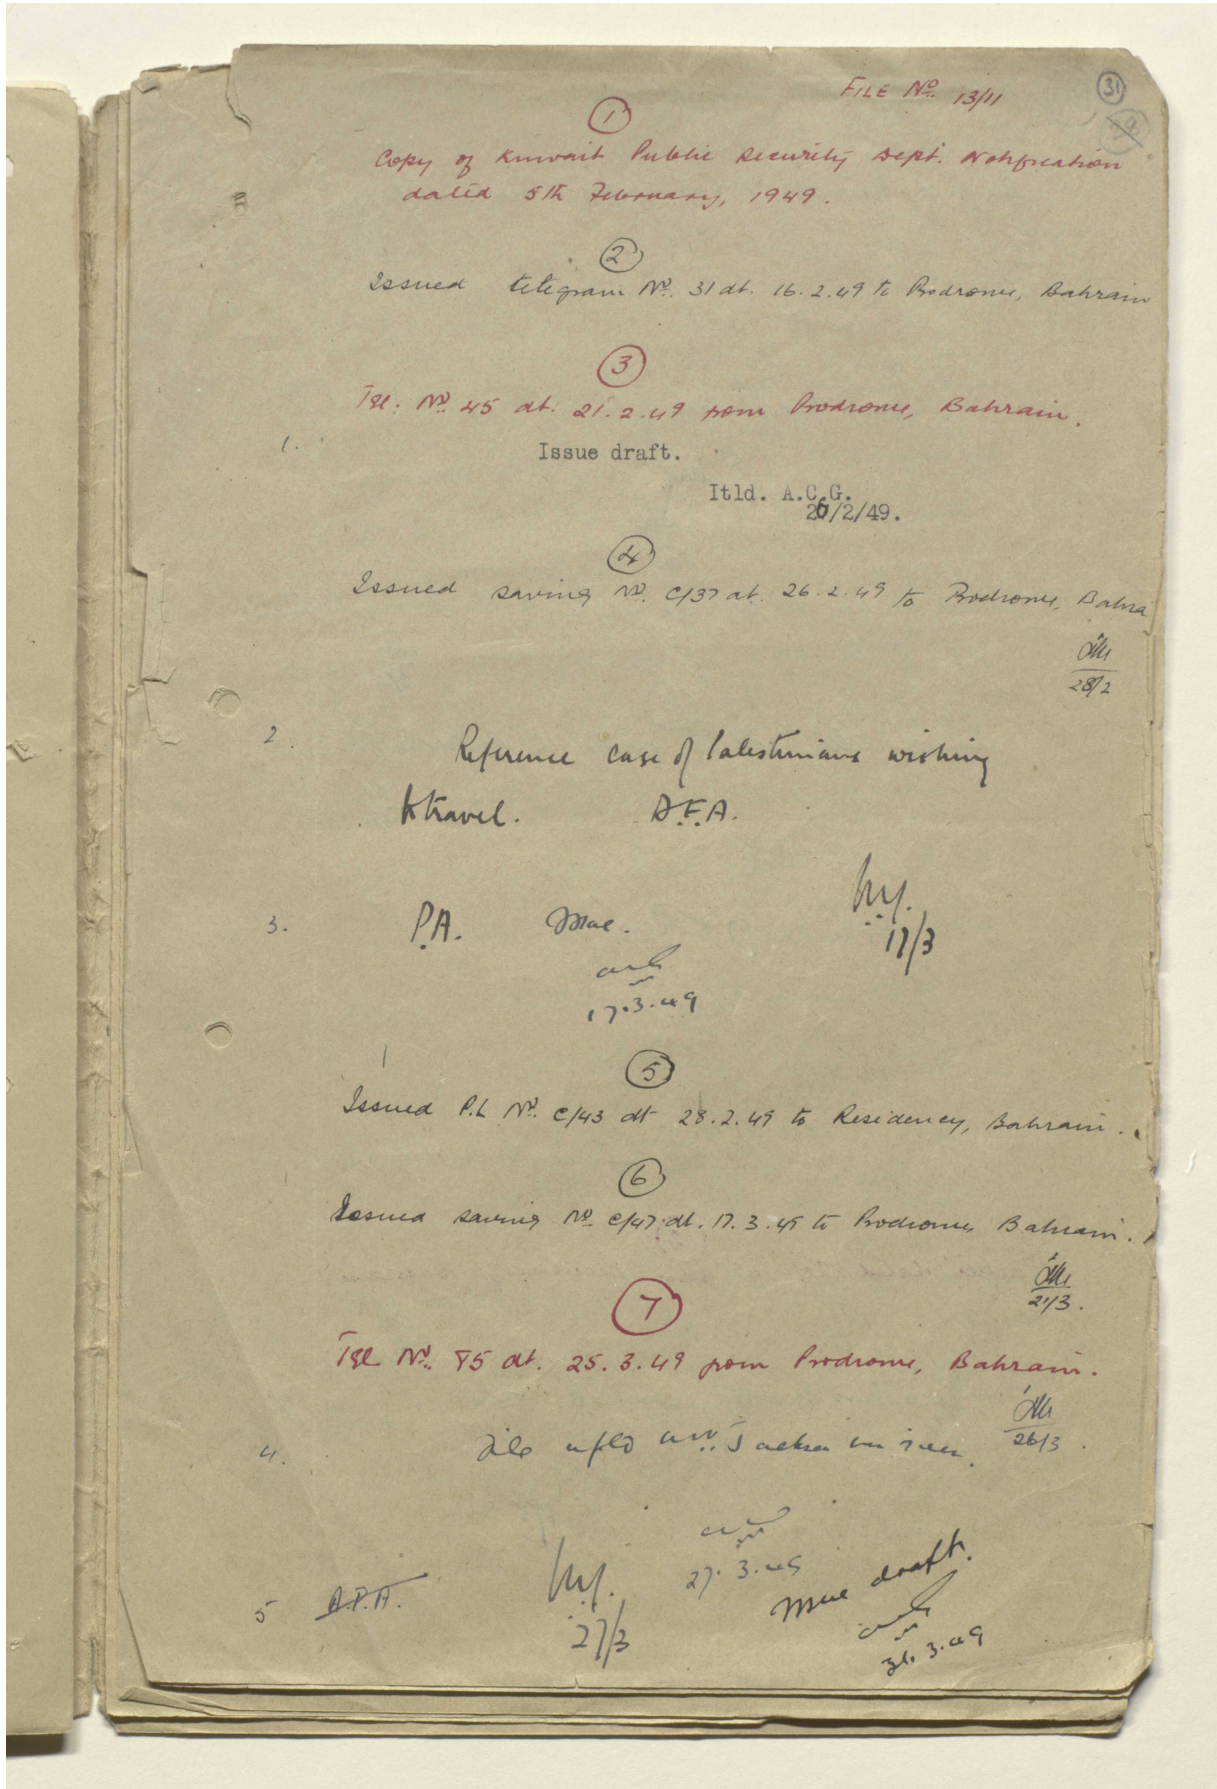 FILE No. 13/11
31
1
Copy of Kuwait Public Security Dept. Notification
dated 5th February, 1949.
2
Issued telegram No. 31 dt. 16.2.49 to Prodrome, Bahrain
3
Tel. No. 45 dt. 21.2.49 from Prodrome, Bahrain.
1.
Issue draft.
Itld. A.C.G.
26/2/49.
4
Issued saving No. C/37 dt. 26.2.49 to Prodrome, Bahra
28/2
2.
Reference case of Palestinians wishing
to travel. D.F.A.
3.
P.A.
17/3
17.3.49
5
Issued P.L No. C/43 dt 28.2.49 to Residency, Bahrain.
6
Issued saving No. C/47 dt. 17.3.49 to Prodrome, Bahrain.
21/3.
7
Tel. No. 85 dt. 25.3.49 from Prodrome, Bahrain.
26/3.
4.
27.3.49
5
A.P.A.
27/3
draft.
3.49